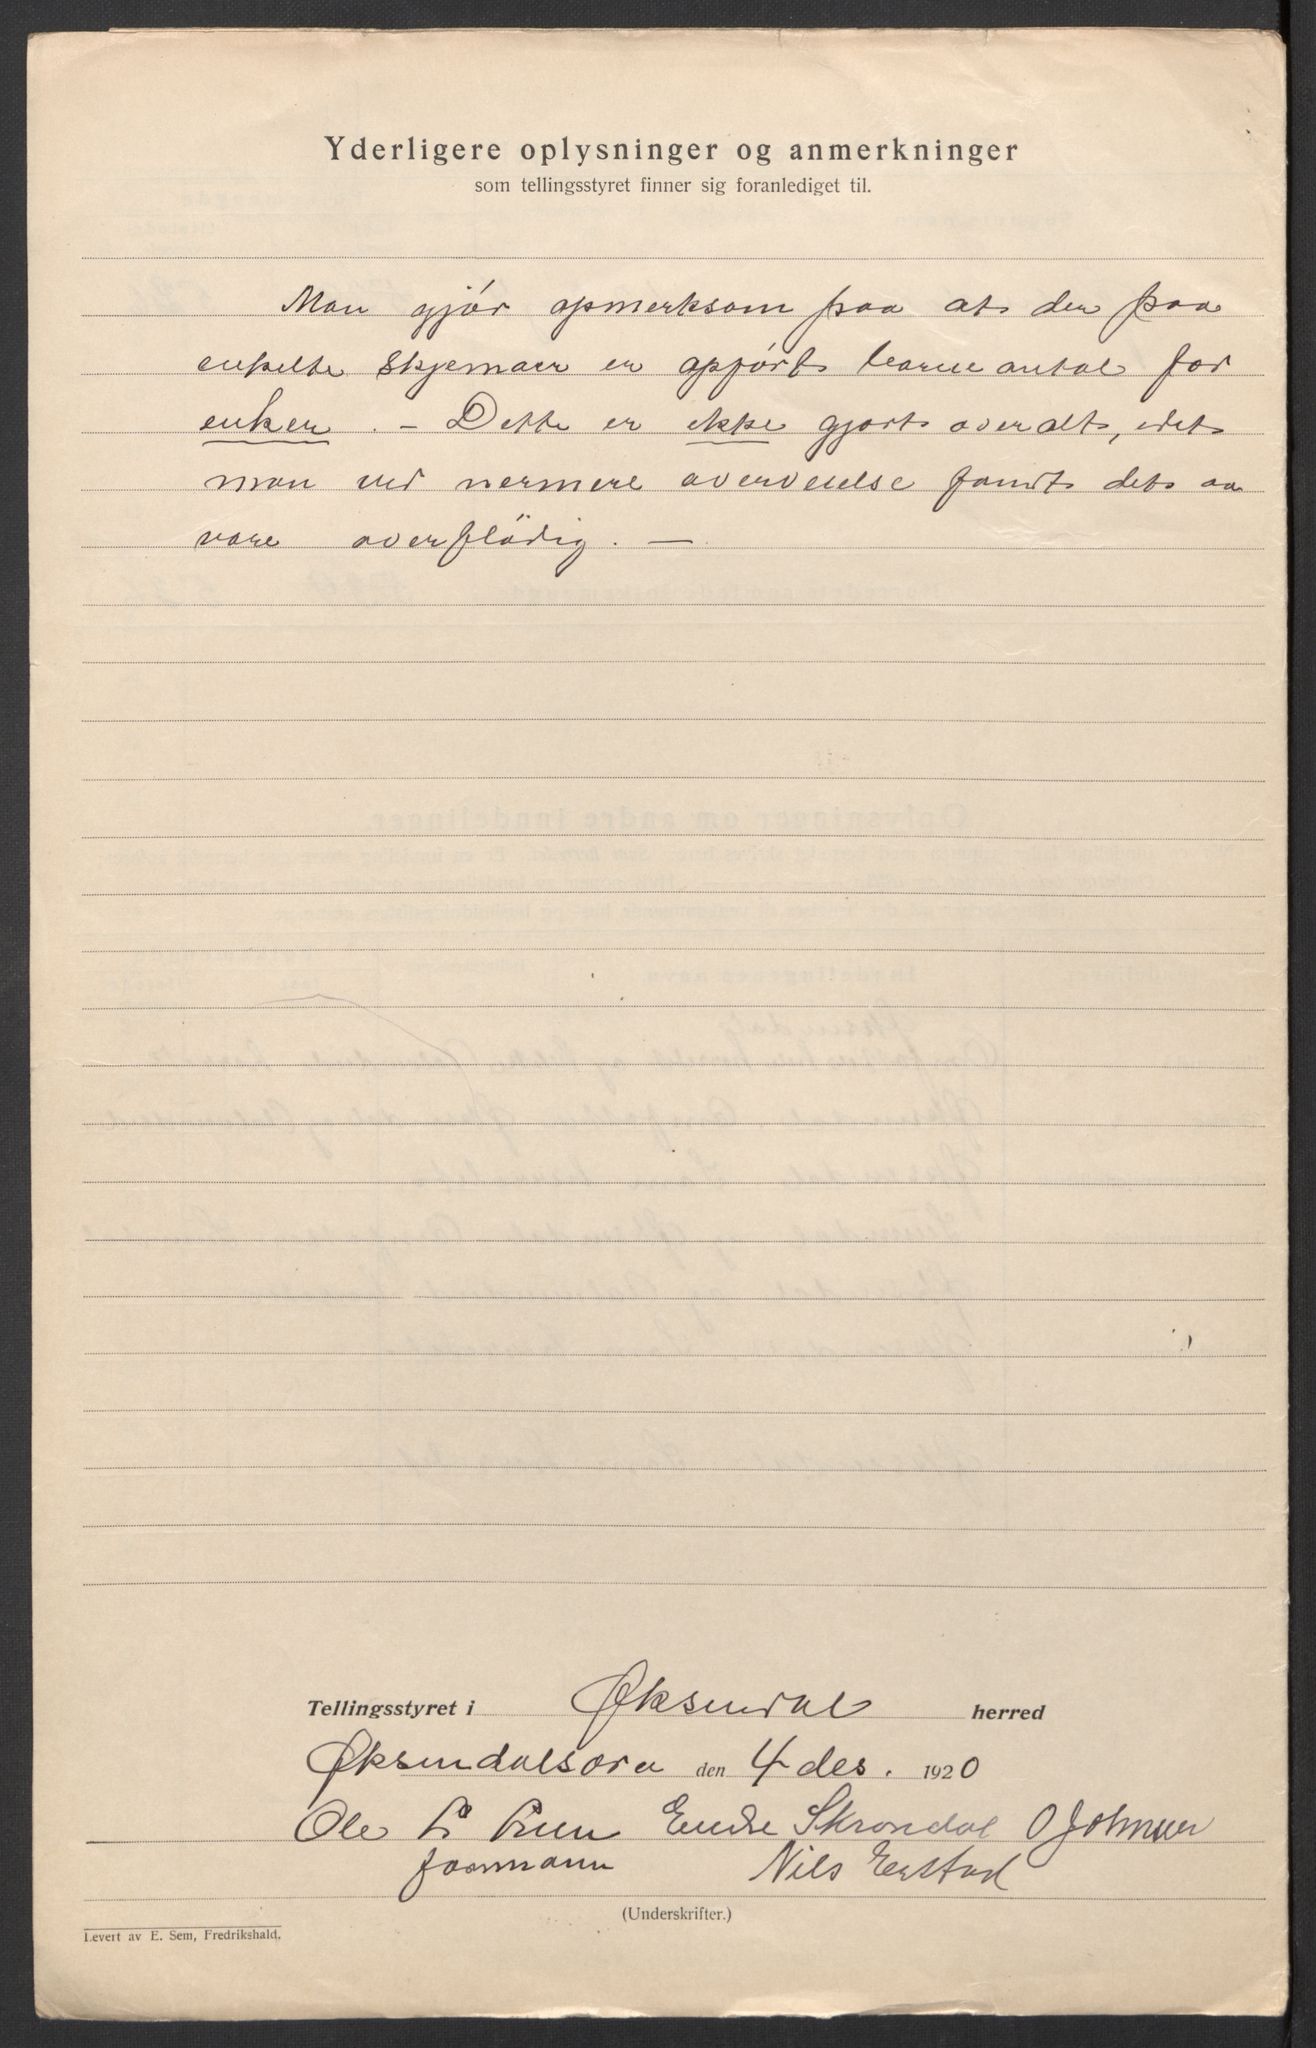 Yderligere oplysninger og anmerkninger
som tellingsstyret finner sig foranlediget til.
Man gjör opmerksom paa at der paa
enkelte skjemaer er opfört barneantal for
enker. - Dette er ikke gjort overalt, idet
man ved nermere overveielse fandt det aa
vare overflödig. -
Tellingsstyret i Øksendal herred
Øksendalsøra den 4 des. 1920
Ole Endre Skrondal O Johnsen
formann Nils Erstad
(Underskrifter.)
Levert av E. Sem, Fredrikshald.